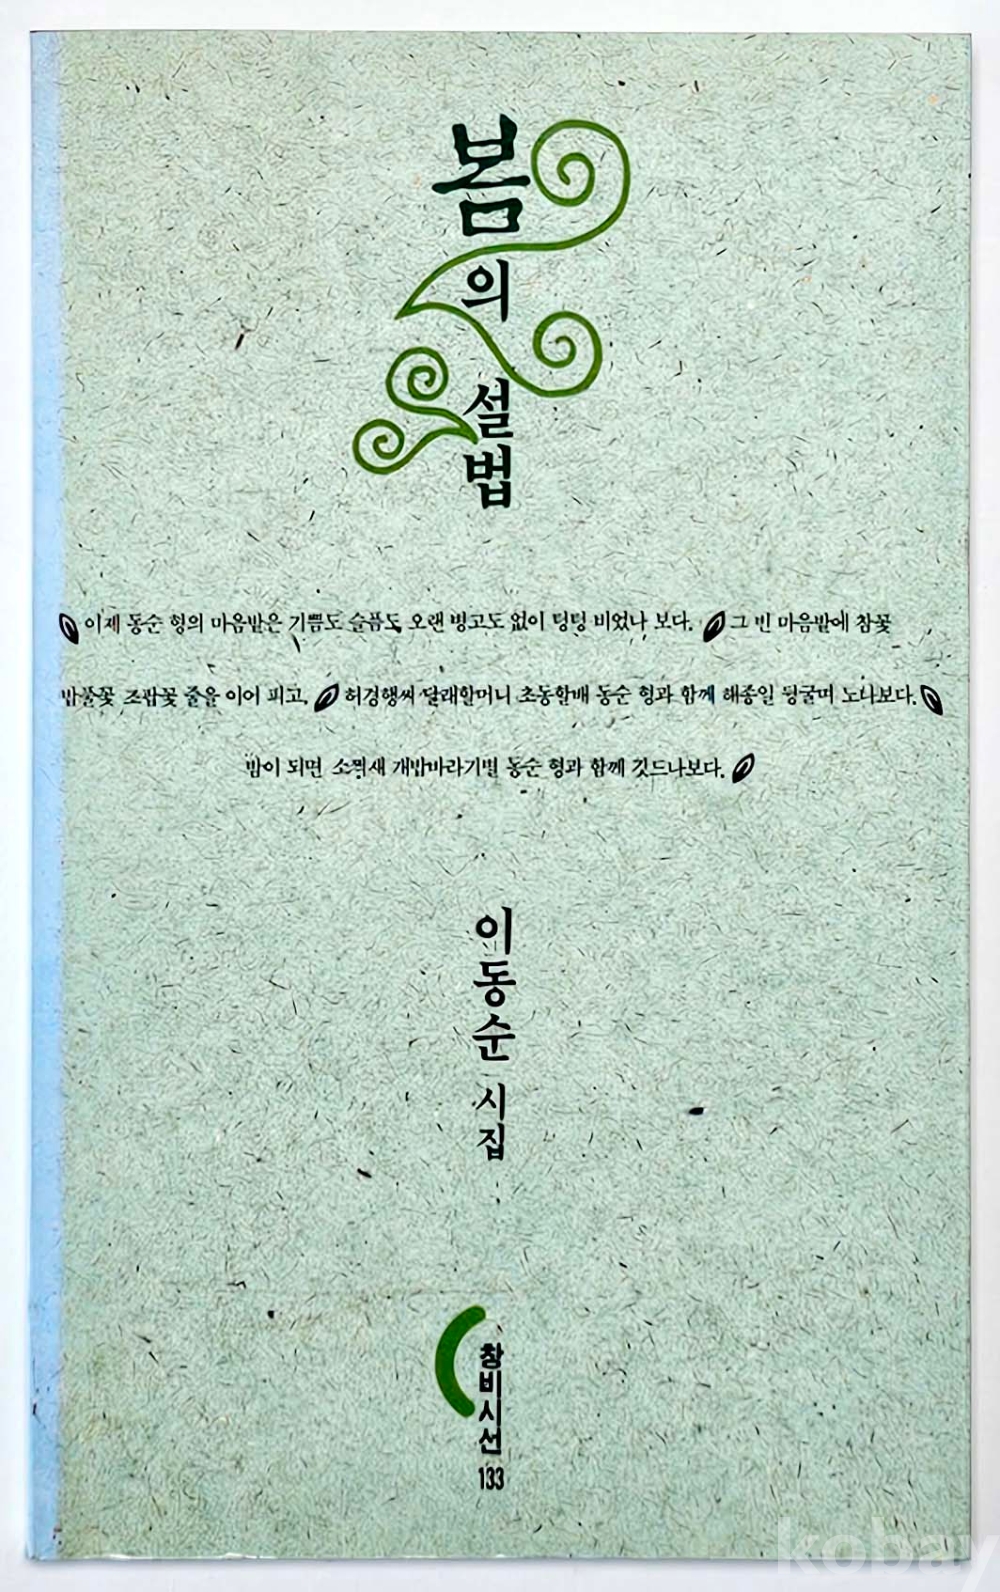 봄의 설법
이제 동순 형의 마음밭은 기쁨도 슬픔도 오랜 병고도 없이 텅텅 비었나 보다. 그 빈 마음밭에 참꽃
밥풀꽃 조팝꽃 줄을 이어 피고, 허경행씨 달래할머니 초동할배 동순 형과 함께 해종일 뒹굴며 노나보다.
밤이 되면 소쩍새 개밥바라기별 동순 형과 함께 깃드나보다.
이동순 시집
창비시선 133
kobay